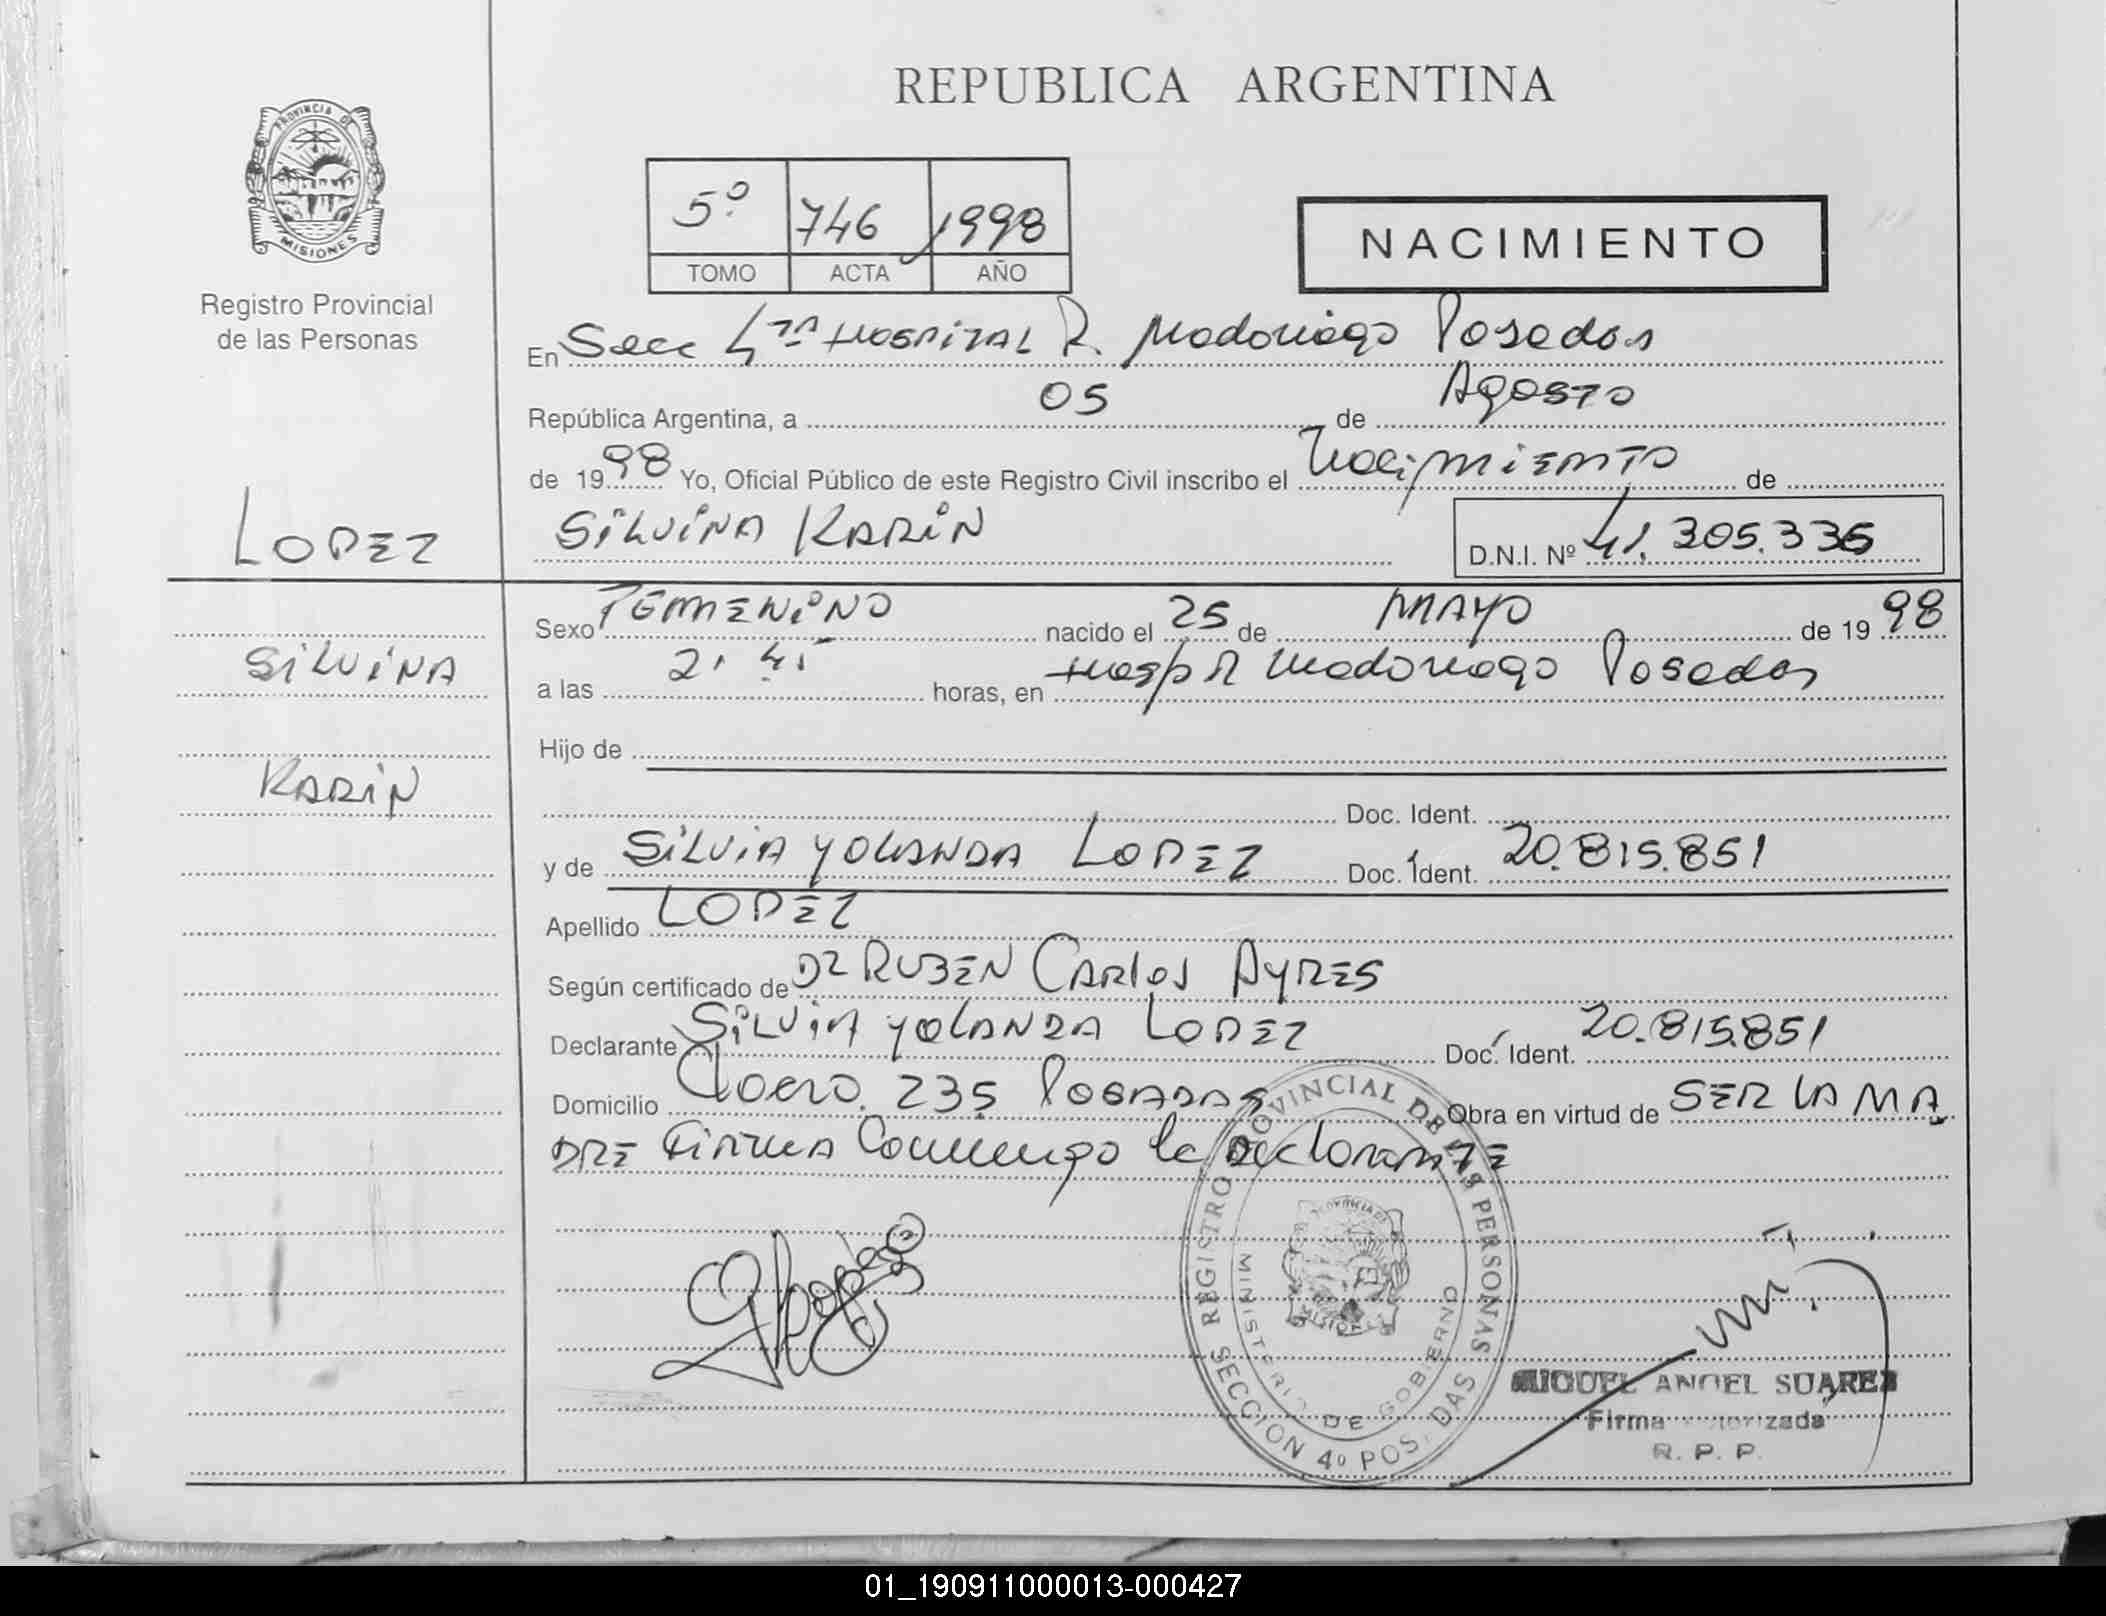 REPUBLICA ARGENTINA
PROVINCIA DE
MISIONES
Registro Provincial
de las Personas
5º 746 1998
TOMO ACTA AÑO
NACIMIENTO
En Secc 4ta HOSPITAL R. Madariaga Posadas
República Argentina, a 05 de Agosto
de 1998 Yo, Oficial Público de este Registro Civil inscribo el Nacimiento de
LOPEZ
SILVINA KARIN
D.N.I. Nº 41.305.336
Sexo FEMENINO nacido el 25 de MAYO de 1998
SILVINA
a las 2.45 horas, en Hosp R Madariaga Posadas
Hijo de
KARIN
Doc. Ident.
y de SILVIA YOLANDA LOPEZ Doc. Ident. 20.815.851
Apellido LOPEZ
Según certificado de DR RUBEN CARLOS AYRES
Declarante SILVIA YOLANDA LOPEZ Doc. Ident. 20.815.851
Domicilio 235 POSADAS Obra en virtud de SER LA MA
DRE FIRMA Conmigo la Declarante
REGISTRO PROVINCIAL DE LAS PERSONAS
MINISTERIO DE GOBIERNO
SECCION 4º POSADAS
MIGUEL ANGEL SUAREZ
Firma Autorizada
R. P. P.
01_190911000013-000427